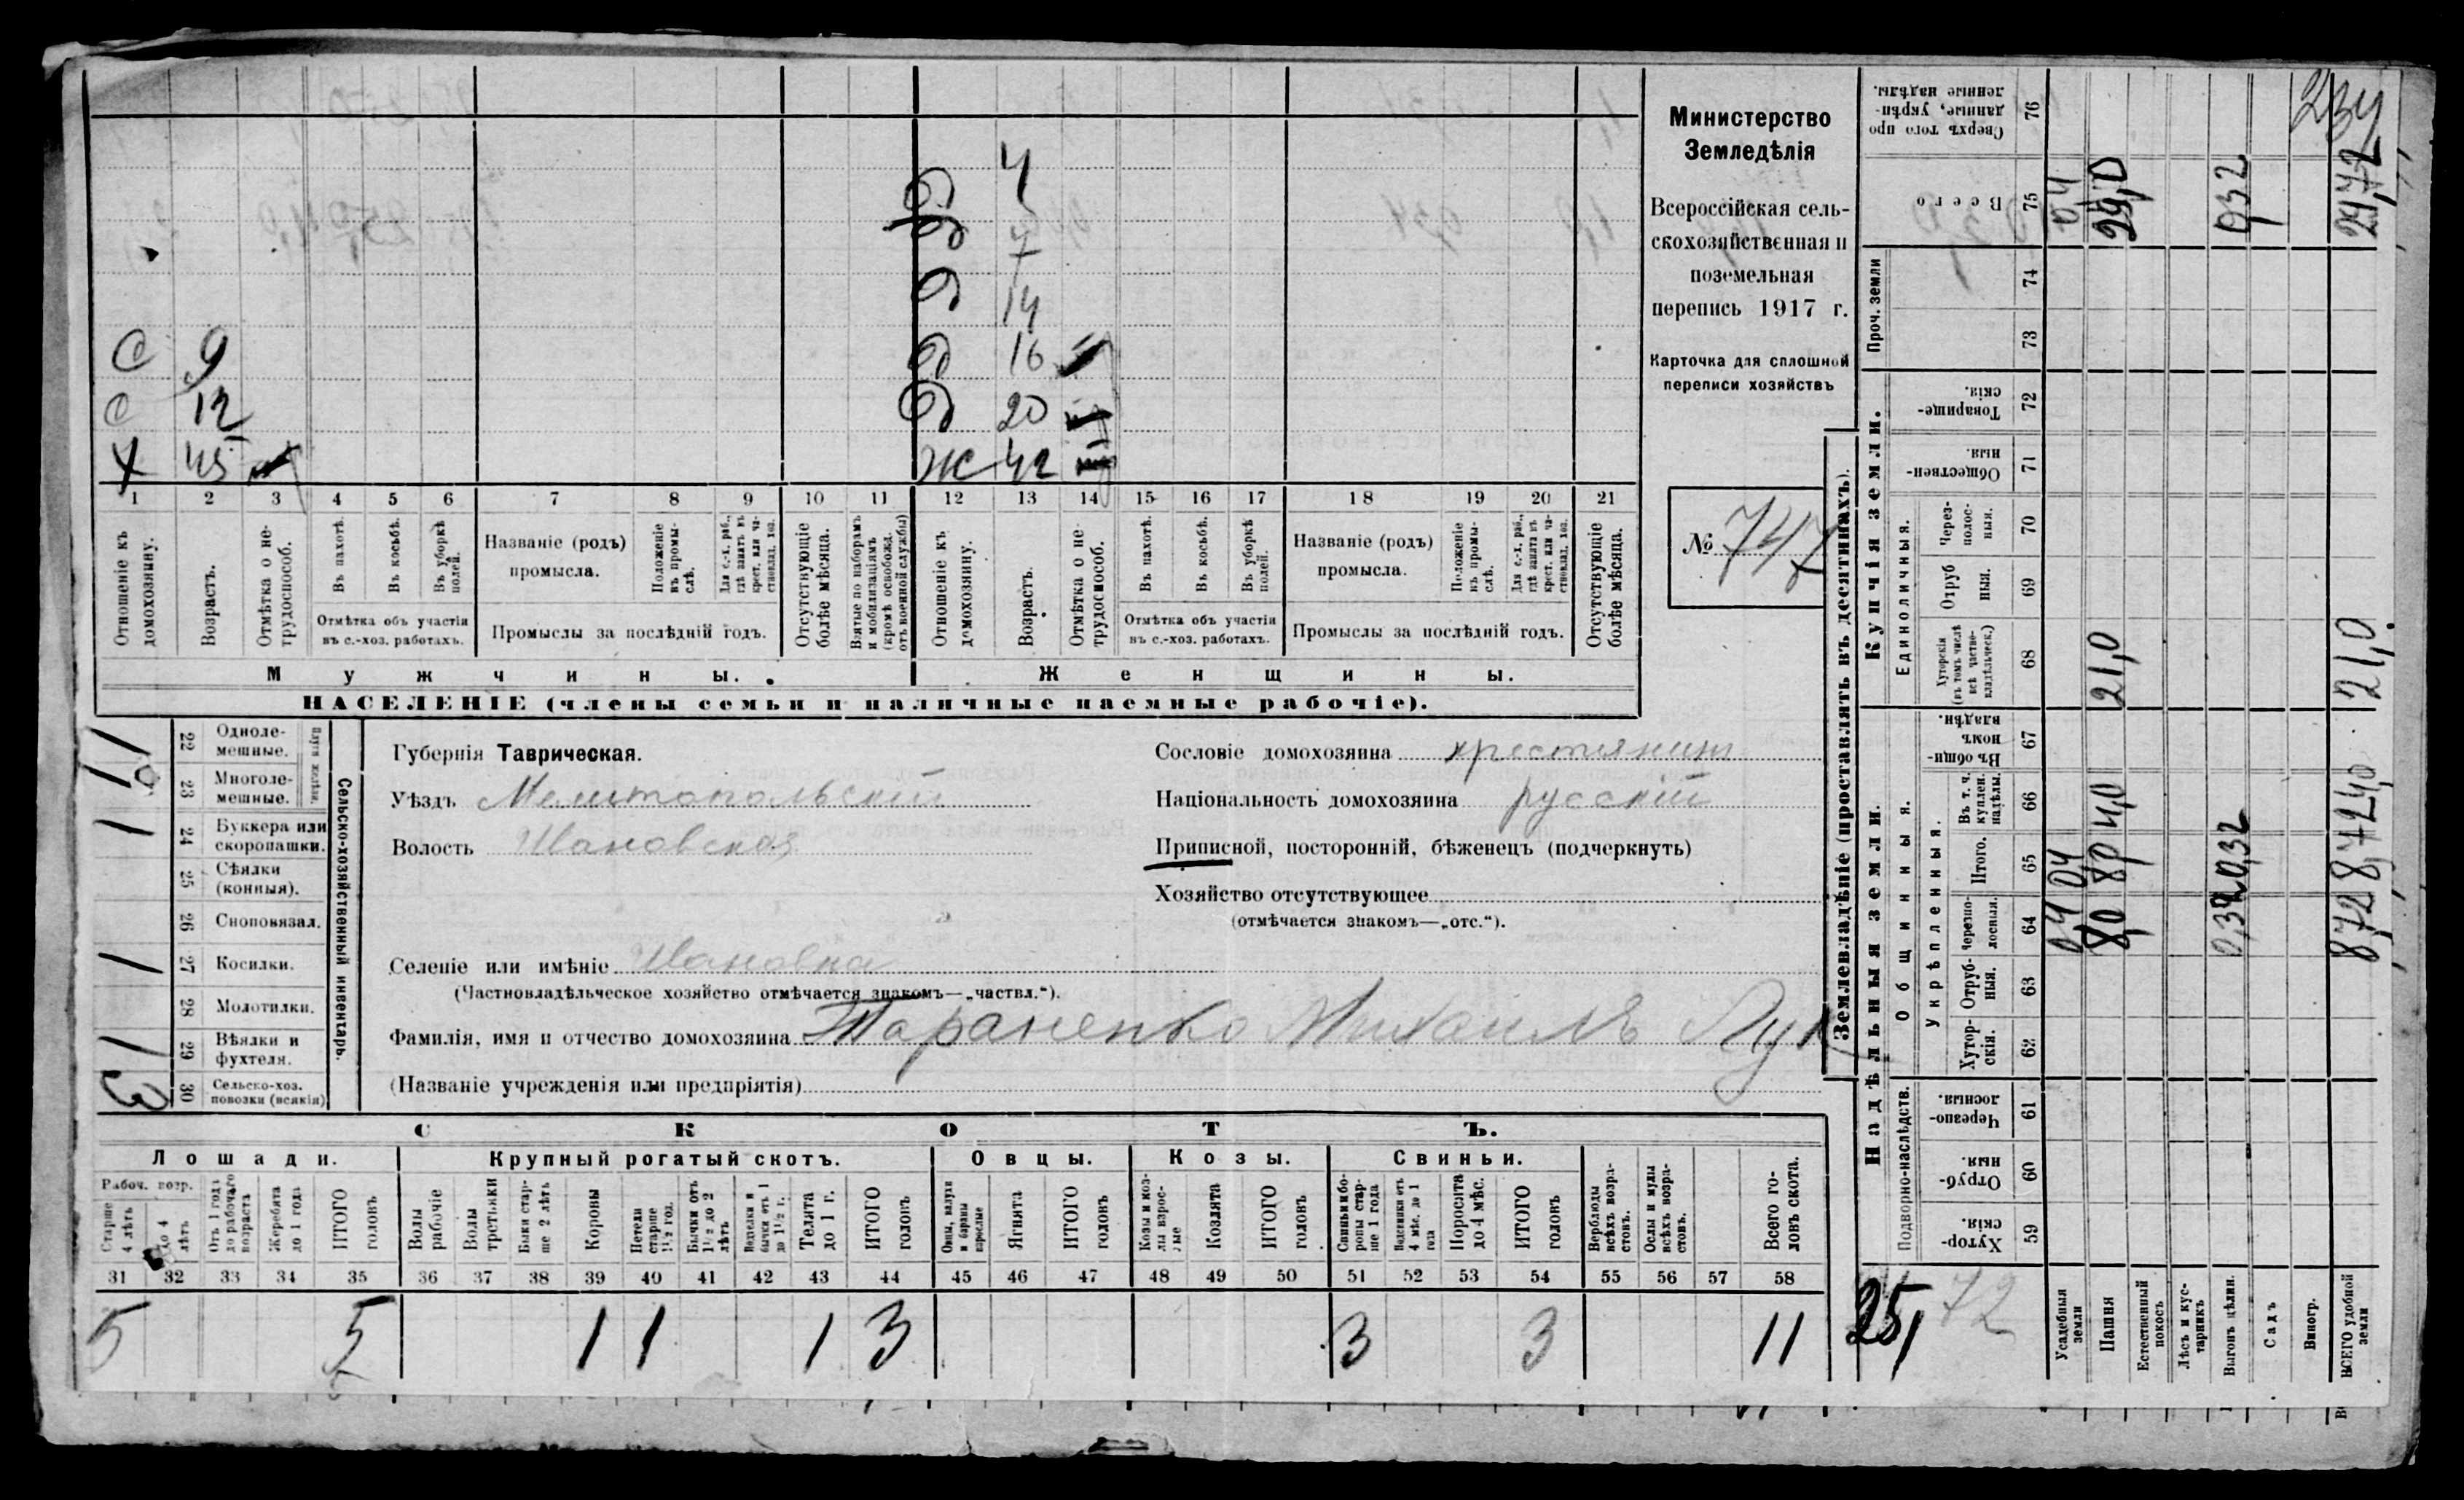 4
б
б 7
б 14
С 9 б 16
С 12 б 20
Х 45 Ж 42
1 2 3 4 5 6 7 8 9 10 11 12 13 14 15 16 17 18 19 20 21
Отношеніе къ домохозяину.
Возрастъ.
Отмѣтка о не-трудоспособ.
Въ пахотѣ.
Въ косьбѣ.
Въ уборкѣ полей.
Отмѣтка объ участіи
въ с.-хоз. работахъ.
Названіе (родъ)
промысла.
Положеніе въ промы-слѣ.
Для с.-х. раб., гдѣ занятъ въ крест. или ча-стновлад. хоз.
Промыслы за послѣдній годъ.
Отсутствующіе болѣе мѣсяца.
Взятые по наборамъ и мобилизаціямъ (кромѣ освобожд. отъ военной службы)
Отношеніе къ домохозяину.
Возрастъ.
Отмѣтка о не-трудоспособ.
Въ пахотѣ.
Въ косьбѣ.
Въ уборкѣ полей.
Отмѣтка объ участіи
въ с.-хоз. работахъ.
Названіе (родъ)
промысла.
Положеніе въ промы-слѣ.
Для с.-х. раб., гдѣ занята въ крест. или ча-стновлад. хоз.
Промыслы за послѣдній годъ.
Отсутствующіе болѣе мѣсяца.
Мужчины. Женщины.
НАСЕЛЕНІЕ (члены семьи и наличные наемные рабочіе).
Министерство
Земледѣлія
Всероссійская сель-
скохозяйственная и
поземельная
перепись 1917 г.
Карточка для сплошной
переписи хозяйствъ
№ 747
22 Одноле-
мешные.
23 Многоле-
мешные.
Плуги желѣзн.
24 Буккера или
скоропашки.
25 Сѣялки
(конныя).
26 Сноповязал.
27 Косилки.
28 Молотилки.
29 Вѣялки и
фухтеля.
30 Сельско-хоз.
повозки (всякія)
3
Сельско-хозяйственный инвентарь.
Губернія Таврическая.
Уѣздъ Мелитопольскій
Волость Ивановская
Селеніе или имѣніе Ивановка
(Частновладѣльческое хозяйство отмѣчается знакомъ—„частвл.“).
Фамилія, имя и отчество домохозяина Тараненко Михаилъ Лук
(Названіе учрежденія или предпріятія)
Сословіе домохозяина крестьянинъ
Національность домохозяина русскій
Приписной, посторонній, бѣженецъ (подчеркнуть)
Хозяйство отсутствующее
(отмѣчается знакомъ—„отс.“).
СКОТЪ.
Лошади. Крупный рогатый скотъ. Овцы. Козы. Свиньи.
Рабоч. возр.
Старше 4 лѣтъ
до 4 лѣтъ
Отъ 1 года до рабочаго возраста
Жеребята до 1 года
ИТОГО головъ
Волы рабочіе
Волы третьяки
Быки стар-ше 2 лѣтъ
Коровы
Нетели старше 1½ год.
Бычки отъ 1½ до 2 лѣтъ
Подтелки и бычки отъ 1 до 1½ г.
Телята до 1 г.
ИТОГО головъ
Овцы, валухи и бараны взрослые
Ягнята
ИТОГО головъ
Козы и коз-лы взрос-лые
Козлята
ИТОГО головъ
Свиньи и бо-ровы стар-ше 1 года
Подсвинки отъ 4 мѣс. до 1 года
Поросята до 4 мѣс.
ИТОГО головъ
Верблюды всѣхъ возра-стовъ.
Ослы и мулы всѣхъ возра-стовъ.
Всего го-ловъ скота.
31 32 33 34 35 36 37 38 39 40 41 42 43 44 45 46 47 48 49 50 51 52 53 54 55 56 57 58
5 5 1 1 1 3 3 3 11
Землевладѣніе (проставлять въ десятинахъ).
Надѣльныя земли. Купчія земли.
Подворно-наслѣдств. Общинныя. Укрѣпленныя. Единоличныя. Проч. земли
Хутор-скія. 59
Отруб-ныя. 60
Черезпо-лосныя. 61
Хутор-скія. 62
Отруб-ныя. 63
Черезпо-лосныя. 64
Итого. 65
Въ т. ч. куплен. надѣлы. 66
Въ общин-номъ владѣн. 67
Хуторскія (въ томъ числѣ всѣ частно-владѣльческ.) 68
Отруб ныя. 69
Через-полос-ныя. 70
Обществен-ныя. 71
Товарище-скія. 72
73
74
Всего 75
Сверхъ того про данные, укрѣп-ленные надѣлы. 76
25, 72
Усадебныя земли 0,4 0,4 0,4
Пашня 8,0 8,0 4,0 21,0 29,0
Естественный покосъ
Лѣсъ и кус-тарникъ
Выгонъ цѣлин. 0,32 0,32 0,32
Садъ
Виногр.
234
ВСЕГО удобной земли 8,72 8,72 4,0 21,0 29,72